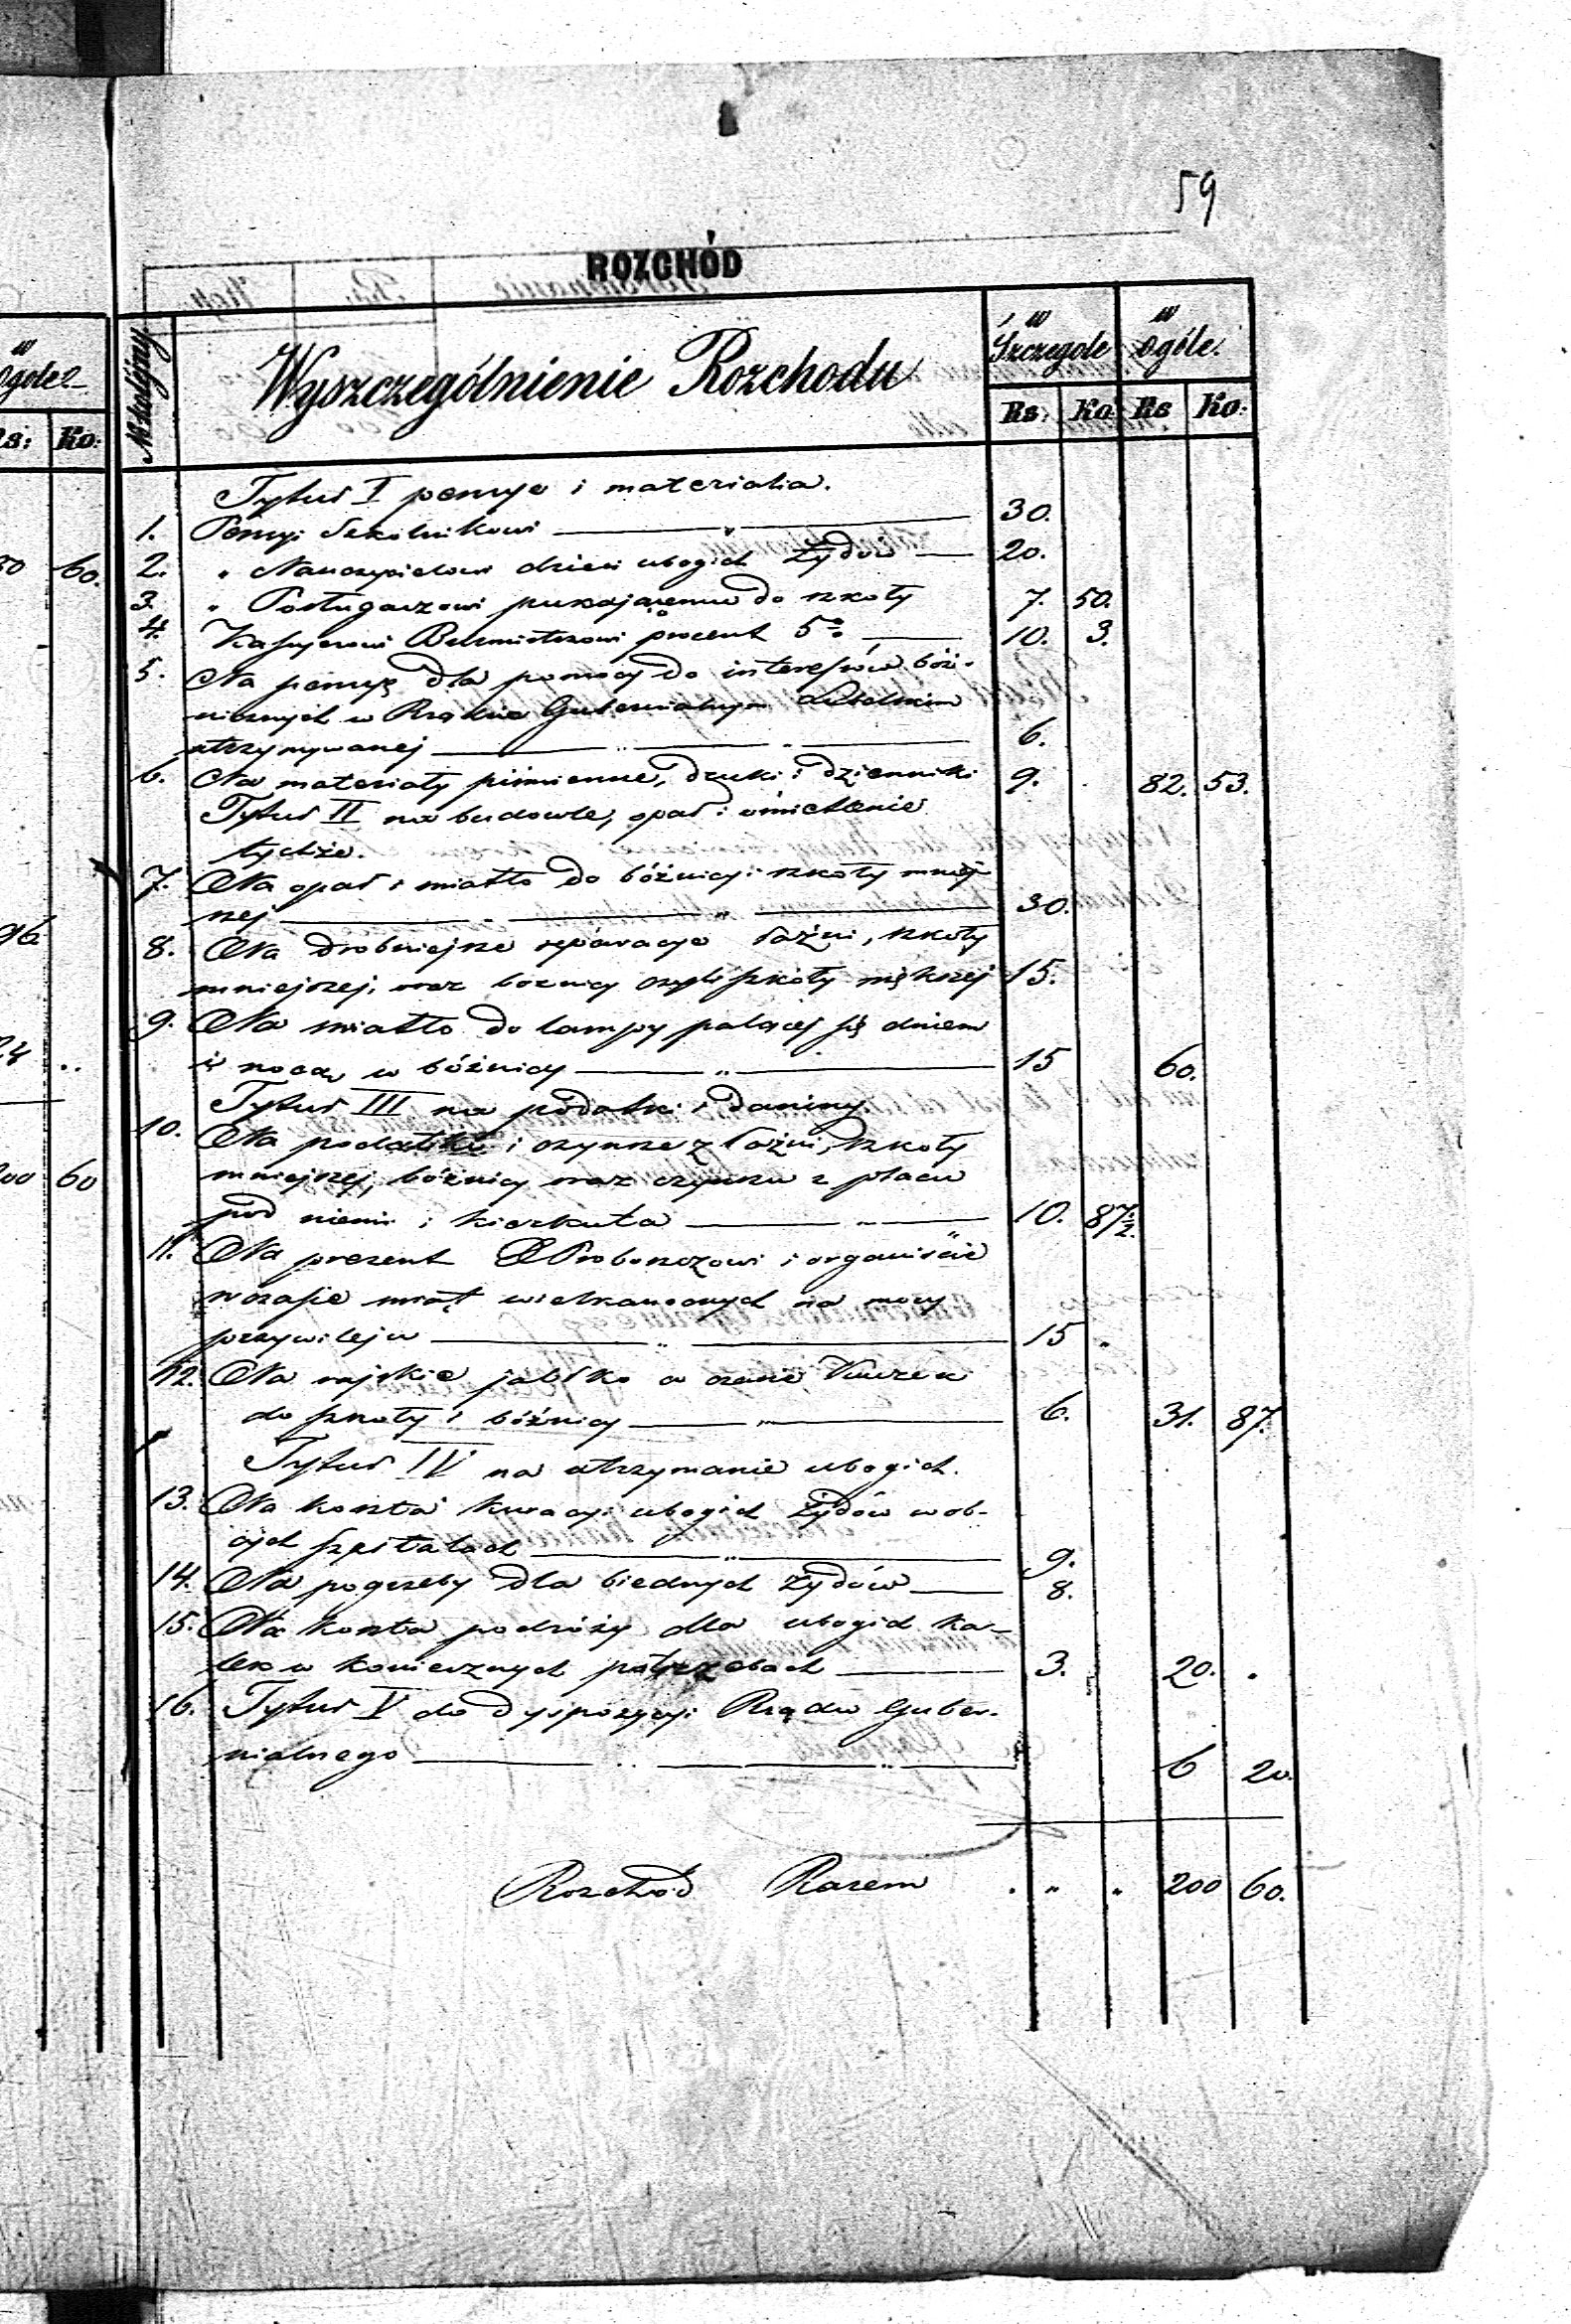 59
ROZCHÓD
№ kolejny
Wyszczególnienie Rozchodu
w Szczegole
w ogóle.
Rs: Ko: Rs Ko:
Tytuł I pensye i materialia.
1. Pensyi Szkolnikowi — " — 30.
2. " Nauczycielowi dzieci ubogich Żydów — 20.
3. " Posługaczowi pukającemu do szkoły 7. 50.
4. Kassyerowi procent 5% — 10. 3.
5. Na pensyę dla pomocy do interessów bóż-
nicznych w Rządzie Gubernialnym Lubelskim
utrzymywanej — " — " — 6.
6. Na materiały piśmienne, druki i dzienniki 9. 82. 53.
Tytuł II na budowle, opał i
tychże.
7. Na opał i światło do bóżnicy i szkoły mniej
szej — " — " — 30.
8. Na drobniejsze reparacye łaźni, szkoły
mniejszej, oraz boznicy czyli szkoły większej 15.
9. Na światło do lampy palącej się dniem
i nocą w bóżnicy — " — 15 60.
Tytuł III na podatki i daniny.
10. Na podatki i czynsze z łaźni, szkoły
mniejszej, bóżnicy oraz czynszu z placu
pod niemi i kierkuta — " — 10. 87 1/2.
11. Na prezent Proboszczowi i organiście
w czasie świąt wielkanocnych na mocy
przywileju — " — 15 "
12. Na rajskie jabłko w czasie Kuczek
do szkoły i bóżnicy — " — 6. 31. 87.
Tytuł IV na utrzymanie ubogich.
13. Na koszta kuracyi ubogich Żydów w ob-
cych szpitalach — " — 9.
14. Na pogrzeby dla biednych Żydów — 8.
15. Na koszta podróży dla ubogich ka-
lek w koniecznych potrzebach — 3. 20. "
16. Tytuł V do dyspozycyi Rządu Guber-
nialnego — " — " — 6 20.
Rozchód Razem . " " 200 60.
ogóle
Rs: Ko:
60.
96.
24 ..
200 60